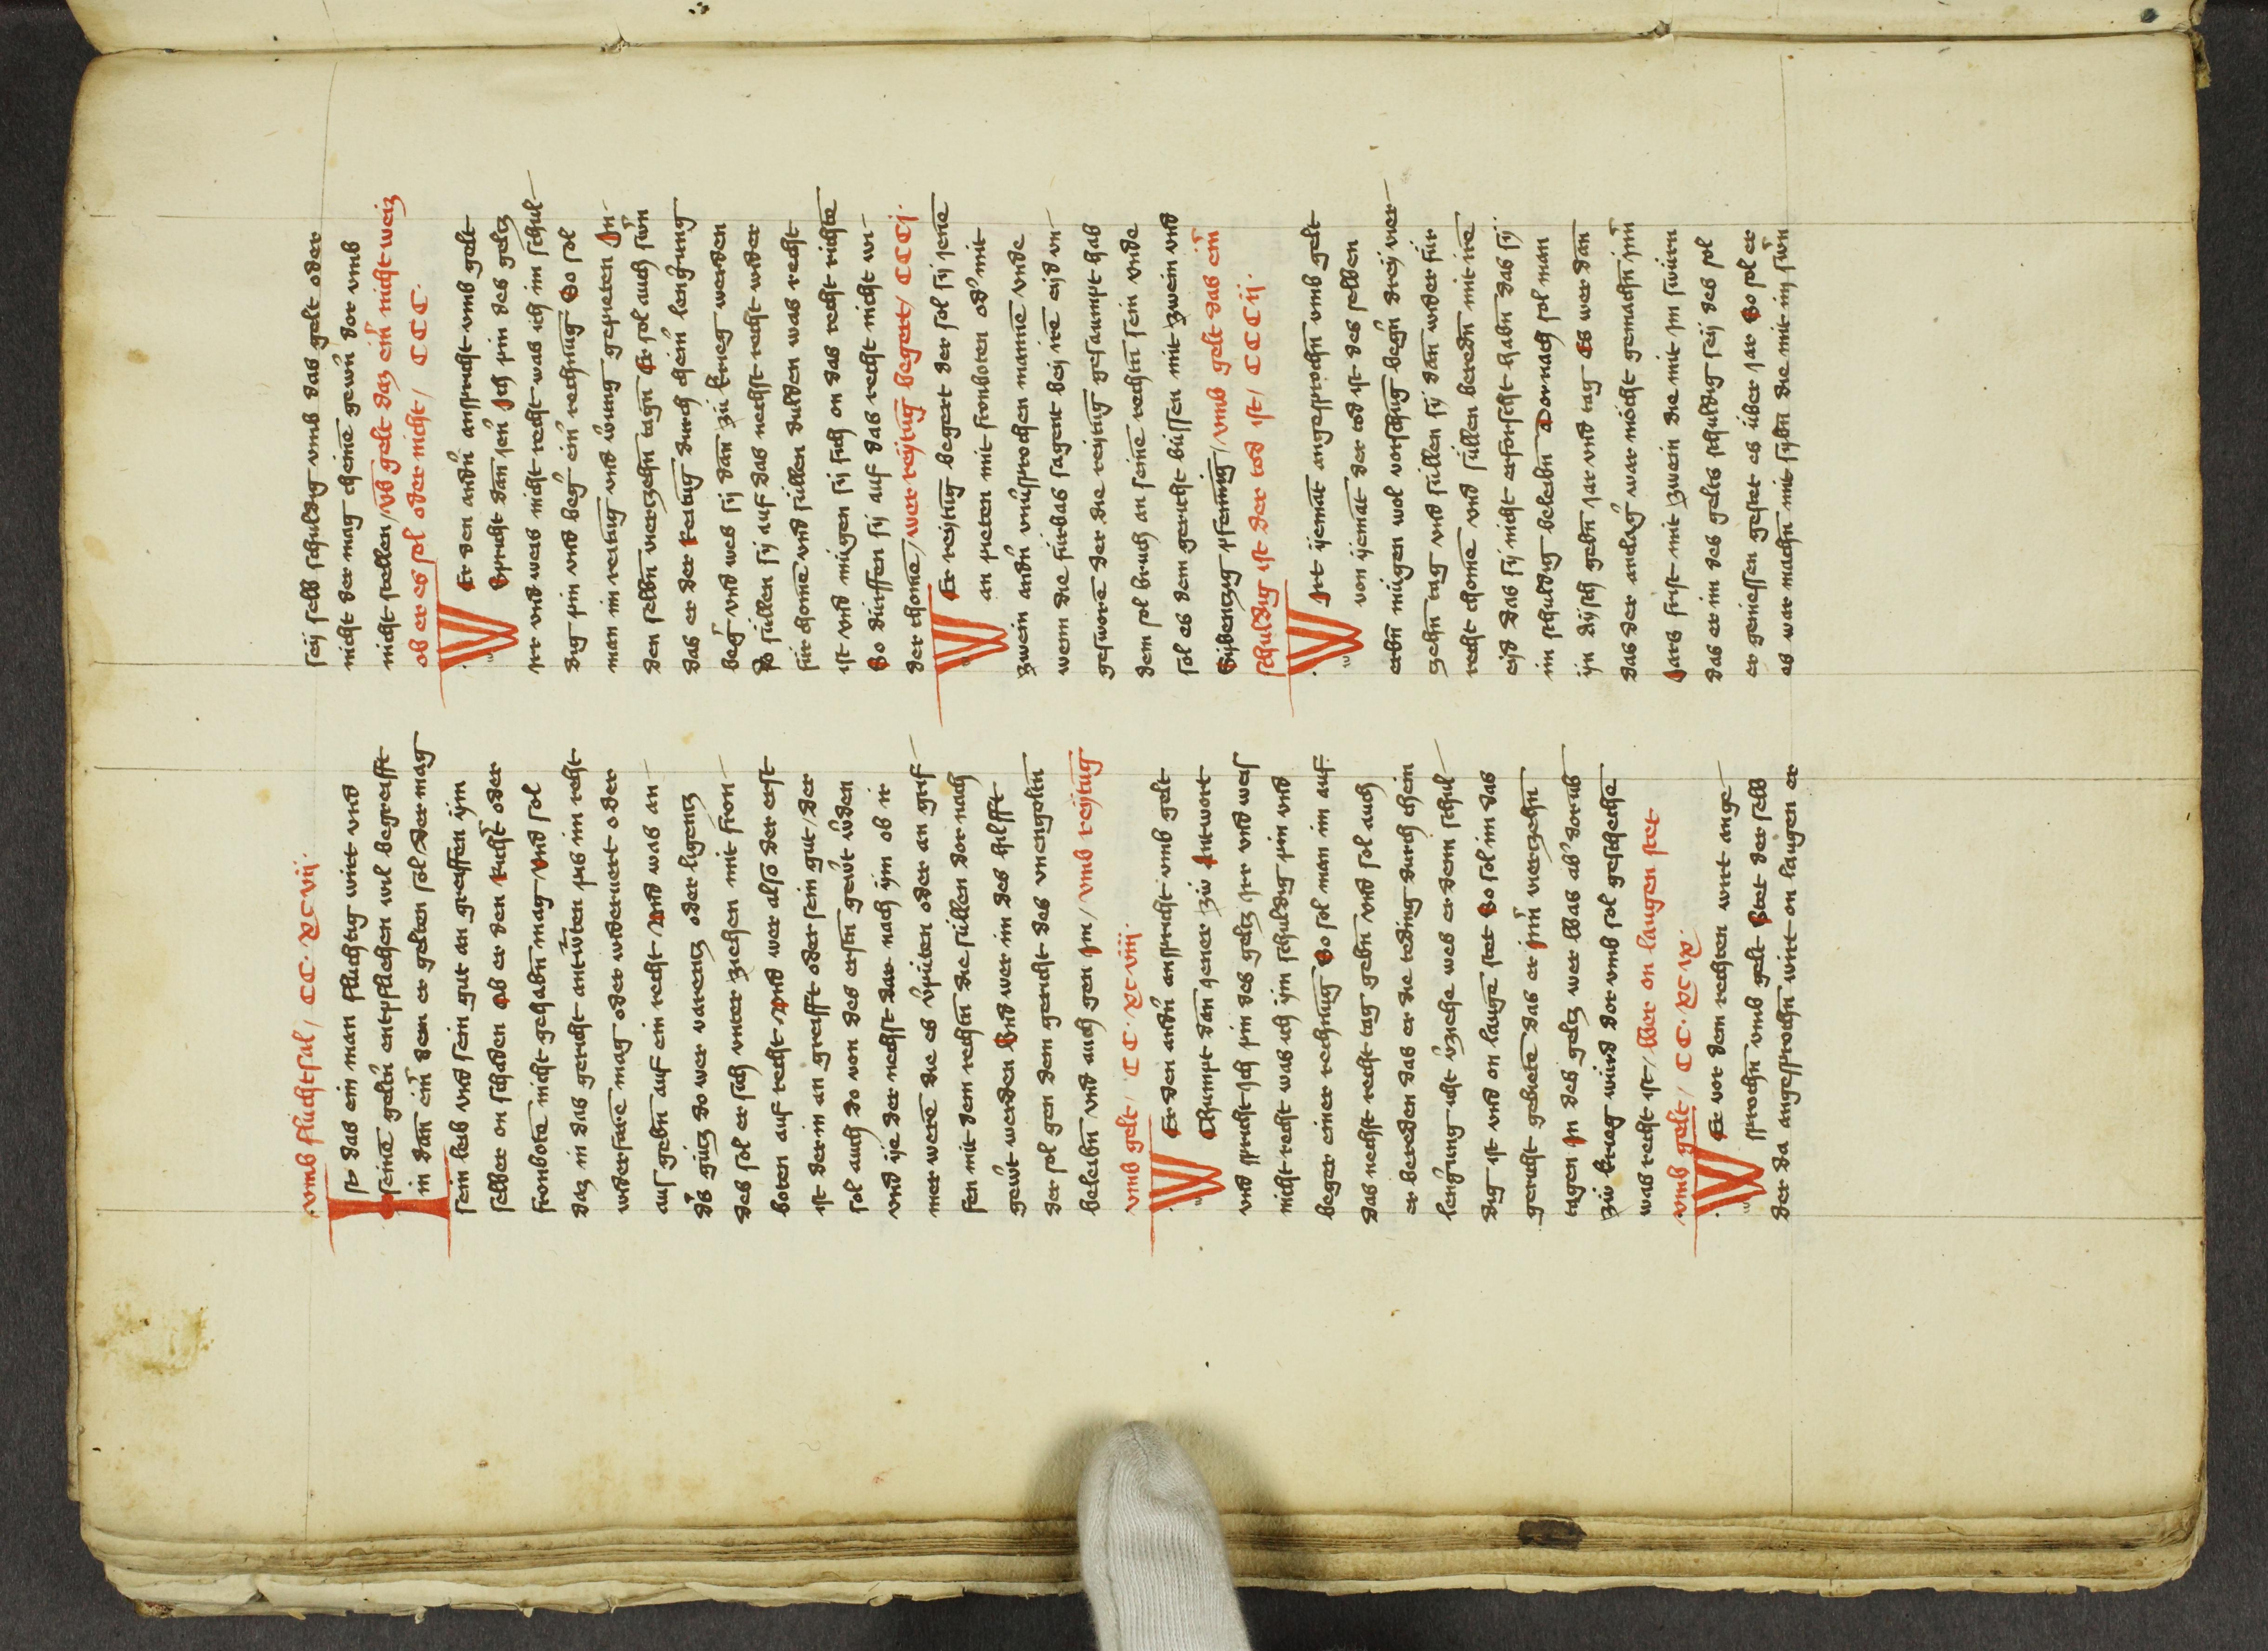 vmb fluchtsal / CC · XC vij ·
Ist das ein man fluchtig wirt vnd
seinē gelt̄n entpflichen wil begreifft
in dan ein̄ dem er gelten sol / der mag
sein leib vnd sein gut an greiffen ym
selber on schaden Ob er den richt̄ oder
fronbotē nicht gehabn̄ mag Vnd sol
daz in das gericht antwrten pis im recht
widerfarē mag oder widervert oder
aus gebn̄ auf ein recht Vnd was an
des gutz do wer varentz oder ligentz
des sol er sich vnter ziehen mit fron
boten auf recht Vnd wer also der erst
ist der in an greifft oder sein gut / der
sol auch do von des erstn̄ gewert wden
vnd ye der nechst dar nach ym ob ir
mer werē die es v̄puten oder an grif
fen mit dem rechtn̄ die sullen dor nach
gewert werden Vnd wer im des hilfft
der sol gen dem gericht des vnengoltn̄
beleibn̄ vnd auch gen Im / vmb reytūg
vmb gelt / CC · XC viij ·
WEr den andn̄ anspricht vmb gelt
Chumpt dan̄ yener zw antwort
vnd spricht ich pin des geltz irr vnd weis
nicht recht was ich ym schuldig pin vnd
beger einer rechnūg So sol man im auf
das nechst recht tag gebn̄ vnd sol auch
er bereden das er die teding durch chein
lengrung icht v̄ziehe wes er dem schul
dig ist vnd on laugē stet So sol im das
gericht gebietē das er Jm̄ vierzehn̄
tagen In des geltz wer / Was ab̄ dorūb
zw krieg wurd dor vmb sol geschehē
was recht ist / Wer on laugen stet
vmb gelt / CC · XC ix ·
WEr vor dem rechten wirt ange
sprochn̄ vmb gelt Stet der selb
der da angesprochn̄ wirt on laugen er
sey selb schuldig vmb das gelt oder
nicht der mag cheinē gewern dor vmb
nicht stellen / vb gelt daz ein̄ nicht weiz
ob er es sol oder nicht / CCC ·
WEr den andn̄ anspricht vmb gelt
Spricht dan̄ jen̄ Ich pin des geltz
irr vnd weis nicht recht was ich im schul
dig pin vnd beger ein̄ rechnūg So sol
man in reitūg vnd v̄bung gepieten In
den selbn̄ vierzehn̄ tagn̄ Er sol auch swern
das er der reitūg durch chein̄ lengrung
beger vnd wes sy dan̄ zu krieg werden
So sullen sy auf das nechst recht wider
fur chomē vnd sullen dulden was recht
ist vnd mugen sy sich on das recht richtē
So durffen sy auf das recht nicht wi
der chomē / wer reytūg begert / CCCj ·
WEr reytūg begert der sol sy jenē
an pieten mit fronboten od̄ mit
zwein andn̄ vnūsprochen mannē vnde
wenn die furbas sagent bej irē eyd vn
gesworē der die reytūg gesaumpt hab
dem sol bruch an seinē rechtn̄ sein vnde
sol es dem gericht bussen mit zwein vnd
Sybentzig pfenning / vmb gelt das ein̄
schuldig ist der tod ist / CCCij ·
WIrt yemāt angesprochn̄ vmb gelt
von yemāt der tod ist des selben
erbn̄ mugen wol vorschūg begern drey vier
zehn̄ tag vnd sullen sy dan̄ wider fur
recht chomē vnd sullen beredn̄ mit irē
eyd das sy nicht erforscht habn̄ das sy
im schuldig beleibn̄ Dornach sol man
yn dysch gebn̄ jar vnd tag Es wer dan̄
das der anclag war möcht gemachn̄ Jnn̄
Jars frist mit zwein die mit im swurn
das er im des geltes schuldig sey des sol
er geniessen gestet es uber jar So sol er
es war machn̄ mit sybn̄ die mit im swern